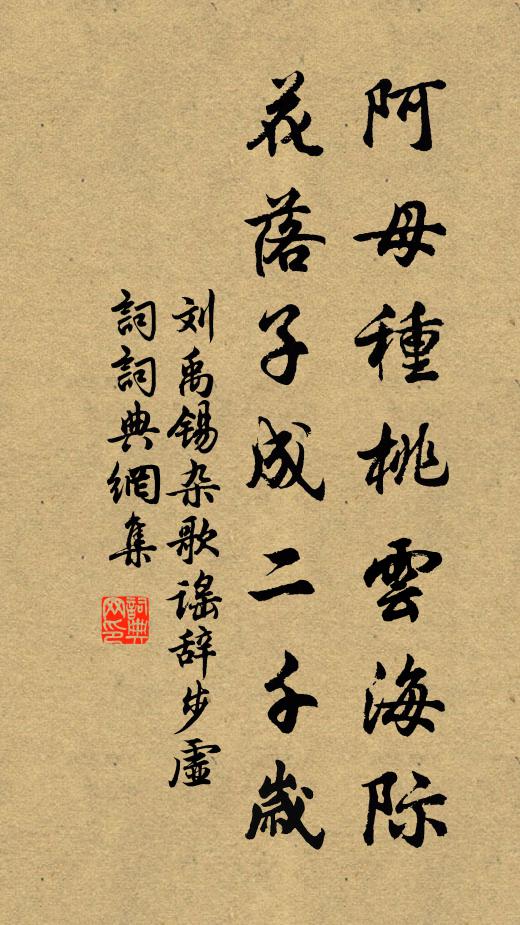 阿母種桃雲海际
花落子成二千歲
刘禹锡杂歌谣辞步虛
詞詞典網集
詞典网印